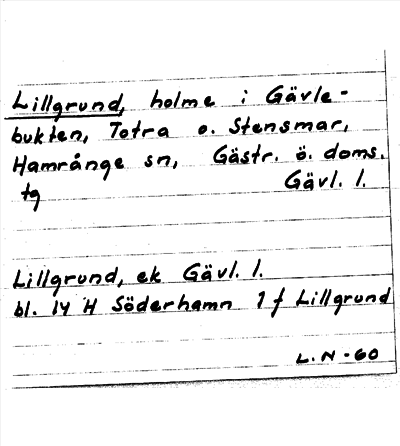 Lillgrund, holme i Gävle-
bukten, Totra o. Stensmar,
Hamrånge sn, Gästr. ö. doms.
tg Gävl. l.
Lillgrund, ek Gävl. l.
bl. 14 H Söderhamn 1 f Lillgrund
L.N-60